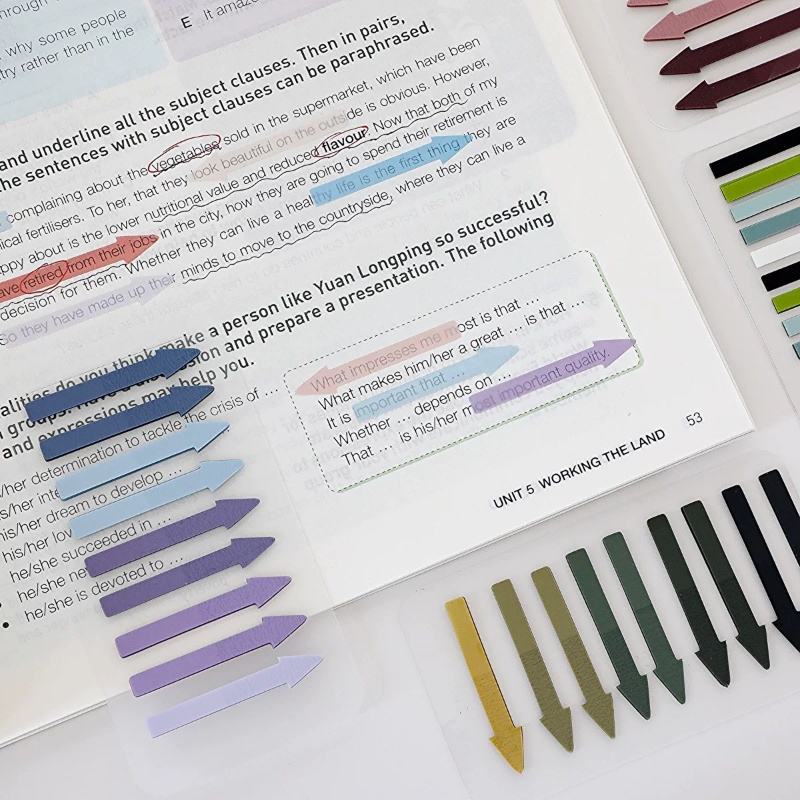 through
why some people
try rather than in the
E It amaze
and underline all the subject clauses. Then in pairs,
the sentences with subject clauses can be paraphrased.
complaining about the vegetables sold in the supermarket, which have been
ical fertilisers. To her, that they look beautiful on the outside is obvious. However,
ppy about is the lower nutritional value and reduced flavour. Now that both of my
ave retired from their jobs in the city, how they are going to spend their retirement is
decision for them. Whether they can live a healthy life is the first thing they are
So they have made up their minds to move to the countryside, where they can live a
alities do you think make a person like Yuan Longping so successful?
groups. Have a discussion and prepare a presentation. The following
and expressions may help you.
s/her determination to tackle the crisis of …
s/her inte
his/her dream to develop …
his/her lov
he/she succeeded in …
he/she ne
he/she is devoted to …
What impresses me most is that …
What makes him/her a great … is that …
It is important that …
Whether … depends on …
That … is his/her most important quality.
UNIT 5 WORKING THE LAND 53